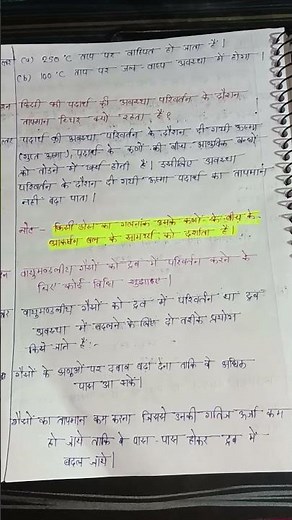 (a) 250°C ताप पर वाष्पित हो जाता है।
(b) 100°C ताप पर जल-वाष्प अवस्था में होगा।
किसी भी पदार्थ की अवस्था परिवर्तन के दौरान
तापमान स्थिर क्यों रहता है?
पदार्थ की अवस्था परिवर्तन के दौरान दी गयी ऊष्मा
(गुप्त ऊष्मा), पदार्थ के कणों की बीच आणविक बन्धों
को तोड़ने में व्यर्थ होती है। इसीलिए अवस्था
परिवर्तन के दौरान दी गयी ऊष्मा पदार्थ का तापमान
नहीं बढ़ा पाता।
नोट - किसी ठोस का गलनांक उसके कणों के बीच के
आकर्षण बल के सामर्थ्य को दर्शाता है।
वायुमण्डलीय गैसों को द्रव में परिवर्तन करने के
लिए कोई विधि सुझाइए।
वायुमण्डलीय गैसों को द्रव में परिवर्तन या द्रव
अवस्था में बदलने के लिए दो तरीके प्रयोग
किये जाते हैं:-
गैसों के अणुओं पर दबाव बढ़ा देना ताकि वे अधिक
पास आ सकें।
गैसों का तापमान कम करना जिससे उनकी गतिज ऊर्जा कम
हो जाये ताकि वे पास-पास होकर द्रव में
बदल जाये।